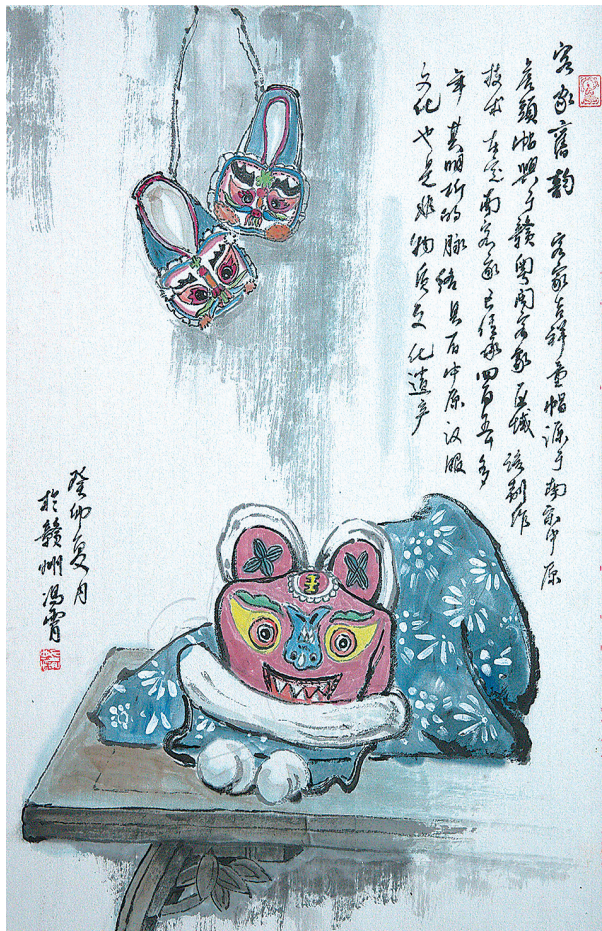 客家舊韵 客家吉祥童帽源于南宋中原
虎頭帽興于赣粤闽客家区域 该制作
技术在定南客家已传承四百多
年 其明析的脉络具有中原汉服
文化也是非物质文化遗产
癸卯夏月
於赣州冯霄